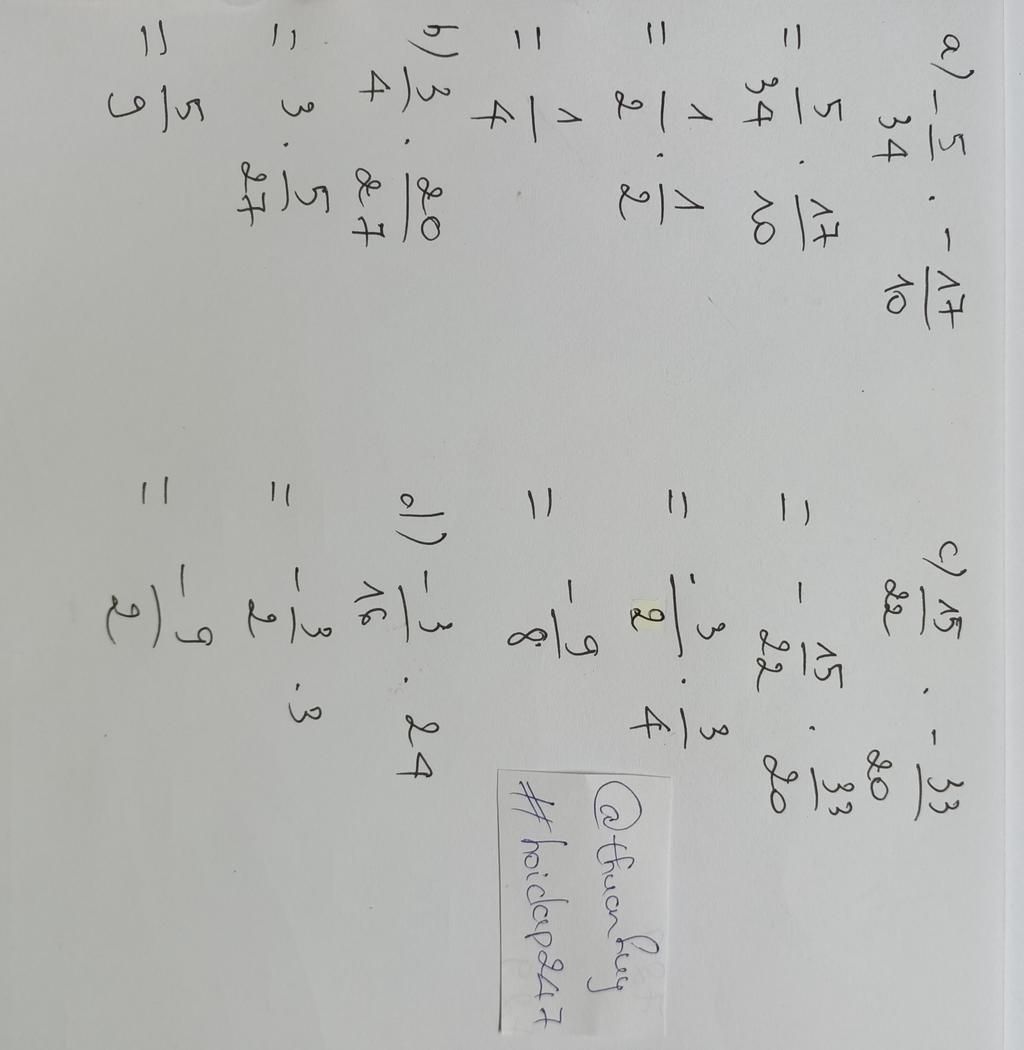 a) -5/34 . -17/10
= 5/34 . 17/10
= 1/2 . 1/2
= 1/4
b) 3/4 . 20/27
= 3 . 5/27
= 5/9
c) 15/22 . -33/20
= -15/22 . 33/20
= -3/2 . 3/4
= -9/8
d) -3/16 . 24
= -3/2 . 3
= -9/2
@thuanhuy
#hoidap247